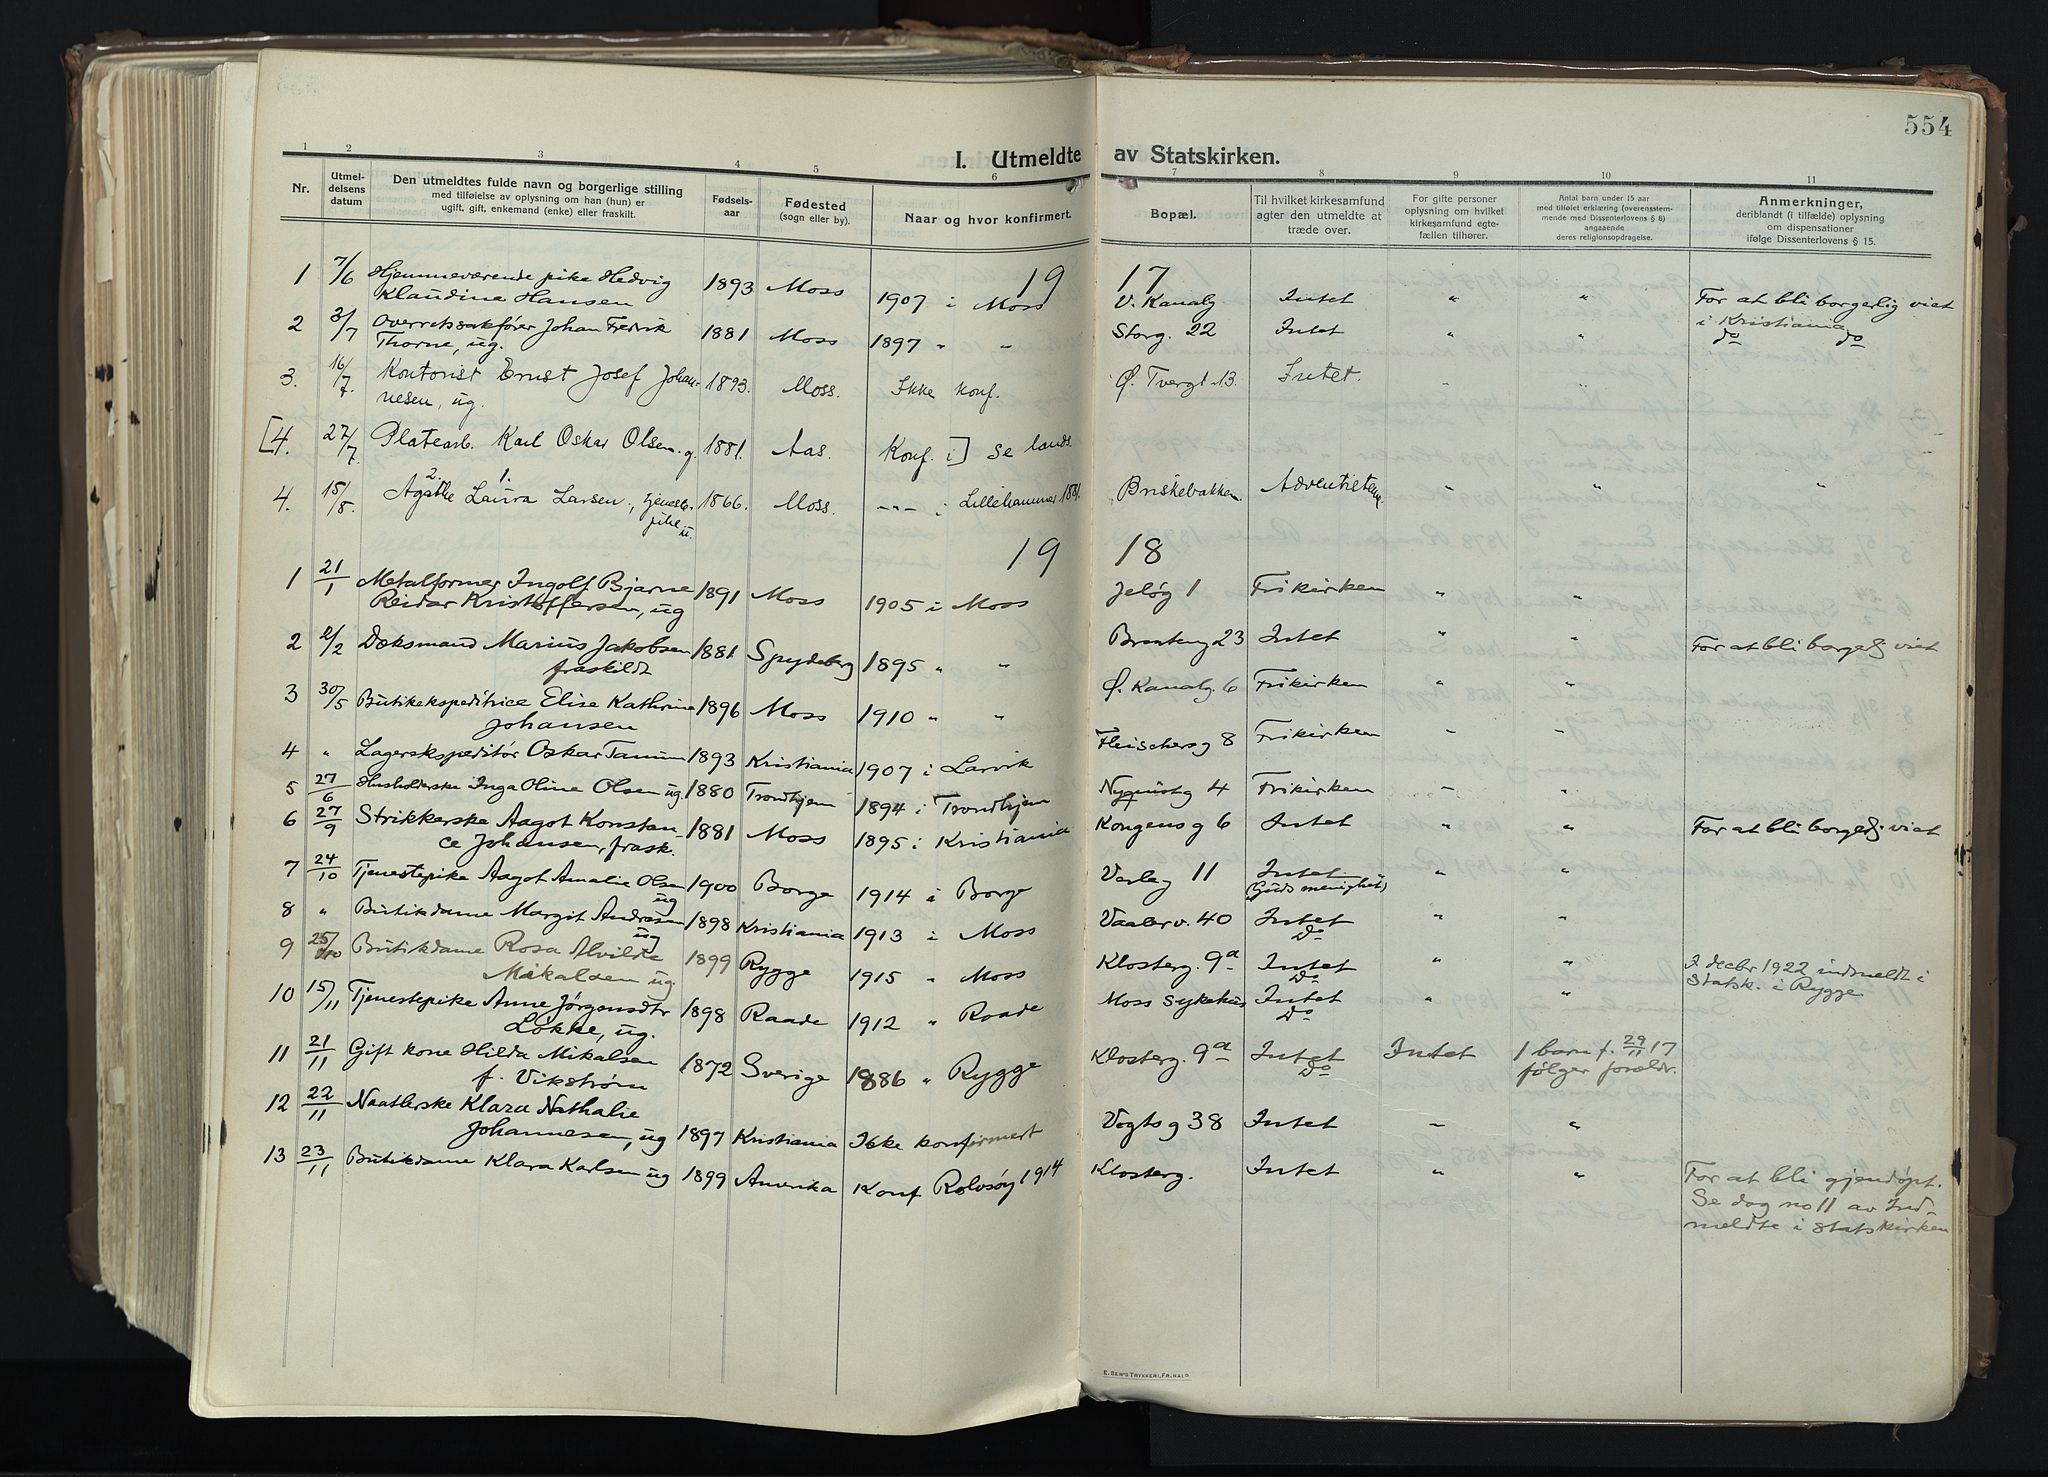 554
I. Utmeldte av Statskirken.
1 2 3 4 5 6 7 8 9 10 11
Nr.
Utmel-
delsens
datum
Den utmeldtes fulde navn og borgerlige stilling
med tilføielse av oplysning om han (hun) er
ugift, gift, enkemand (enke) eller fraskilt.
Fødsels-
aar
Fødested
(sogn eller by).
Naar og hvor konfirmert.
Bopæl.
Til hvilket kirkesamfund
agter den utmeldte at
træde over.
For gifte personer
oplysning om hvilket
kirkesamfund egte-
fællen tilhører.
Antal barn under 15 aar
med tilføiet erklæring (overensstem-
mende med Dissenterlovens § 8)
angaaende
deres religionsopdragelse.
Anmerkninger,
deriblandt (i tilfælde) oplysning
om dispensationer
ifølge Dissenterlovens § 15.
19 17
1 7/6 Hjemmeværende pike Hedvig 1893 Moss 1907 i Moss V. Kanalg Intet " " For at bli borgerlig viet
Klaudine Hansen i Kristiania
2 3/7 Overretssakfører Johan Fredrik 1881 Moss 1897 " " Storg. 22 Intet " " do do
Thorne, ug.
3. 16/7. Kontorist Ernst Josef Johan- 1893. Moss. Ikke konf. Ø. Tvergt. 13. Intet. "
nesen, ug.
[4. 27/7. Platearb. Karl Oskar Olsen. g. 1881. Aas. Konf. i] Se lands.
4. 15/8. 2. Agathe 1. Laura Larsen, tjeneste- 1866. Moss. -"- i Lillehammer 1881. Briskebakken Adventistene " " "
pike u.
19 18
1 21/1 Metalformer Ingolf Bjarne 1891 Moss 1905 i Moss Jeløg 1 Frikirken " "
Reidar Kristoffersen, ug
2 2/2 Dæksmand Marius Jakobsen 1881 Spydeberg 1895 " " Brænteng 23 Intet " " For at bli borgelg viet
fraskildt
3 30/5 Butikekspeditrice Elise Kathrine 1896 Moss 1910 " " Ø. Kanalg. 6 Frikirken " "
Johansen
4 " Lagerekspeditør Oskar Tanum 1893 Kristiania 1907 i Larvik Fleischersg 8 Frikirken " "
5 27/6 Husholderske Inga Oline Olsen ug. 1880 Trondhjem 1894 i Trondhjem Nyquistg 4 Frikirken " "
6 27/9 Strikkerske Aagot Konstan- 1881 Moss 1895 i Kristiania Kongensg 6 Intet " " For at bli borgelg viet
ce Johansen, frask.
7 24/10 Tjenestepike Aagot Amalie Olsen 1900 Borge 1914 i Borge Varleg 11 Intet " "
ug (Guds menighet)
8 " Butikdame Margit Andresen 1898 Kristiania 1913 i Moss Vaalerv. 40 Intet " "
ug Do
9 25/10 Butikdame Rosa Alvilde 1899 Rygge 1915 " Moss Klosterg. 9a Intet " " 7 decbr 1922 indmeldt i
Mikalsen ug. Do Statsk. i Rygge
10 15/11 Tjenestepike Anne Jørgensdtr 1898 Raade 1912 " Raade Moss sykehus Intet " "
Løkke, ug. Do
11 21/11 Gift kone Hilda Mikalsen 1872 Sverige 1886 " Rygge Klosterg. 9a Intet Intet 1 barn f. 29/11 17
f. Vikstrøm Do følger forældr.
12 22/11 Naatlerske Klara Nathalie
Johannesen, ug 1897 Kristiania Ikke konfirmert Vogtsg 38 Intet " "
13 23/11 Butikdame Klara Karlsen ug 1899 Amerika Konf Rolvsøy 1914 Klosterg. Intet " " For at bli gjendøpt.
Se dog no 11 av Ind-
meldte i statskirken
E. SEM'S TRYKKERI, FR.HALD